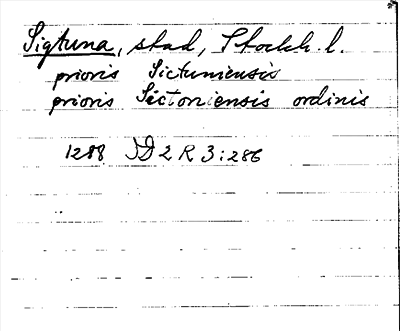 Sigtuna, stad, Stockh. l.
prioris Sictuniensis
prioris Sictoniensis ordinis
1288 SD 2 R 3:286